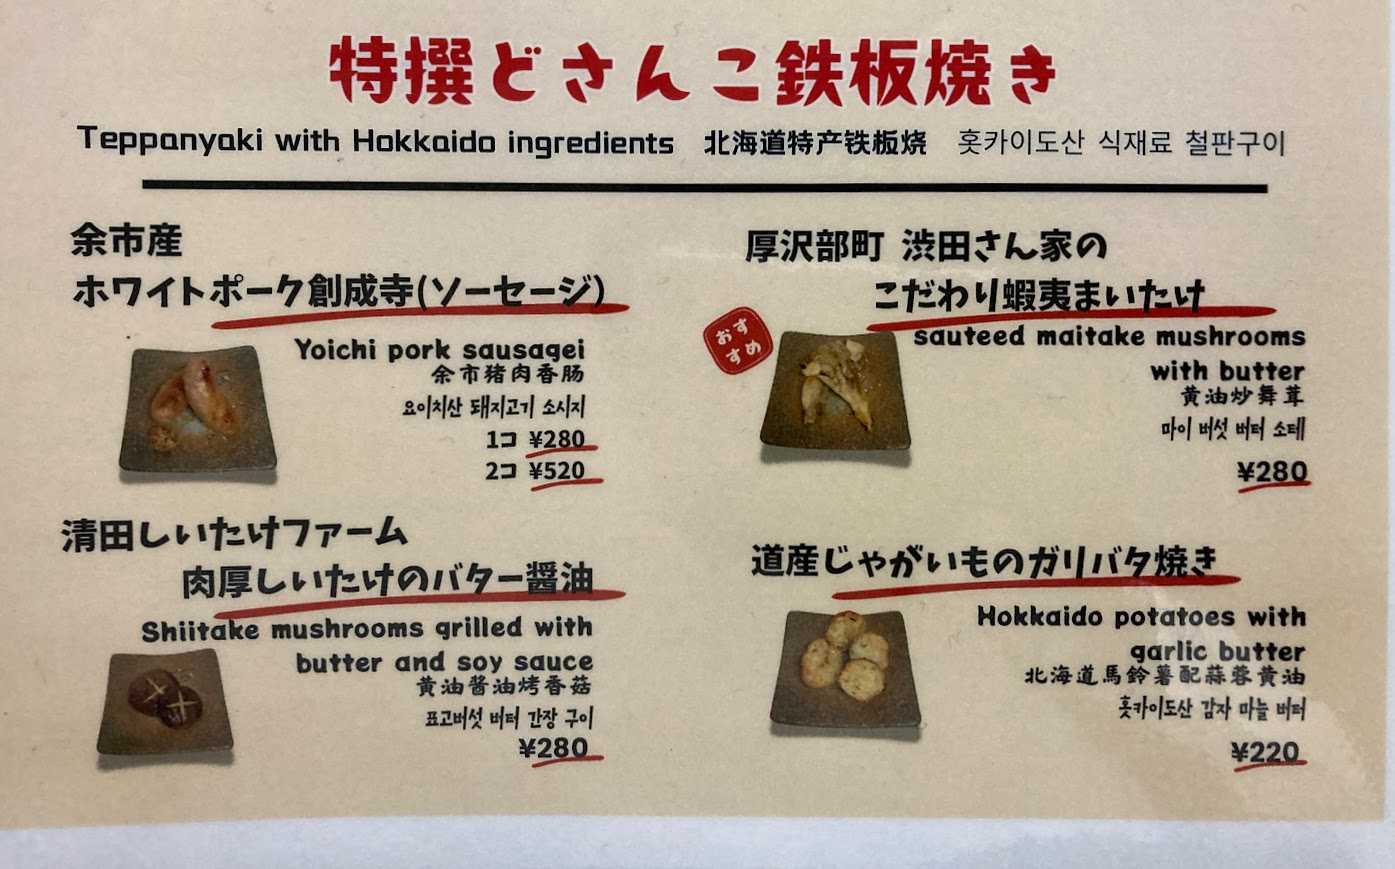 特撰どさんこ鉄板焼き
Teppanyaki with Hokkaido ingredients 北海道特产铁板烧 홋카이도산 식재료 철판구이
余市産
ホワイトポーク創成寺(ソーセージ)
Yoichi pork sausagei
余市猪肉香肠
요이치산 돼지고기 소시지
1コ ¥280
2コ ¥520
厚沢部町 渋田さん家の
こだわり蝦夷まいたけ
おす
すめ
sauteed maitake mushrooms
with butter
黄油炒舞茸
마이 버섯 버터 소테
¥280
清田しいたけファーム
肉厚しいたけのバター醤油
Shiitake mushrooms grilled with
butter and soy sauce
黄油酱油烤香菇
표고버섯 버터 간장 구이
¥280
道産じゃがいものガリバタ焼き
Hokkaido potatoes with
garlic butter
北海道馬鈴薯配蒜蓉黄油
홋카이도산 감자 마늘 버터
¥220